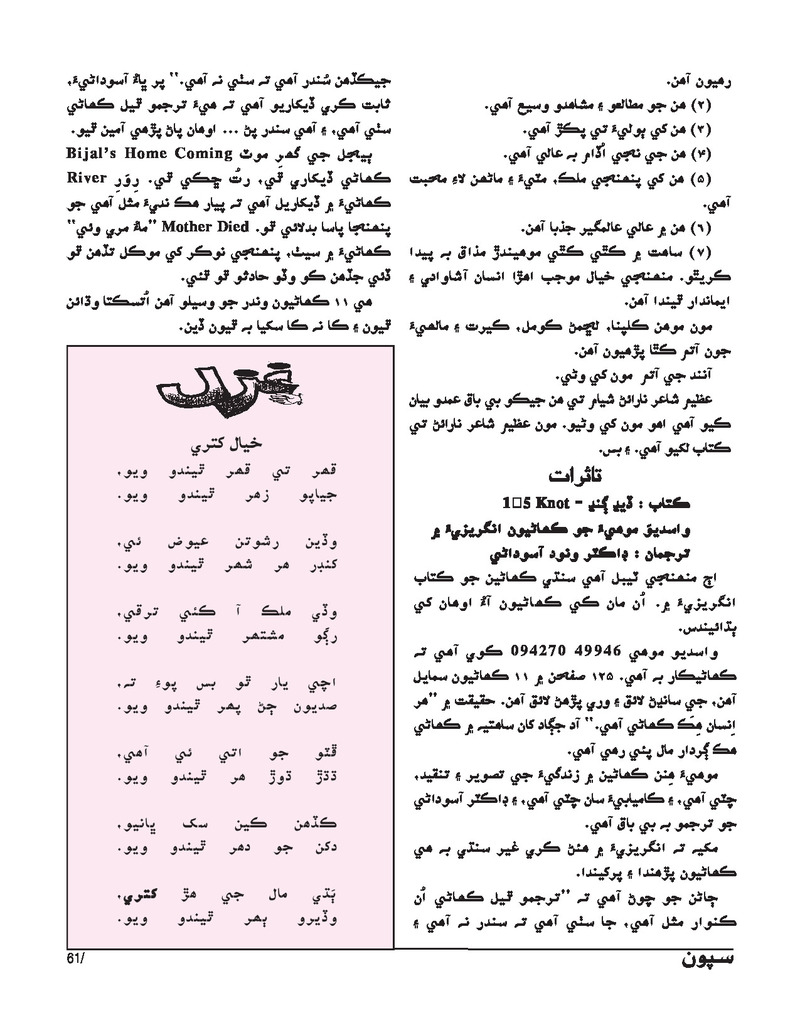 رهيون آهن.
(۲) هن جو مطالعو ۽ مشاهدو وسيع آهي.
(۳) هن کي ٻوليءَ تي پڪڙ آهي.
(۴) هن جي نڄي اُڏام به عالي آهي.
(۵) هن کي پنهنجي ملڪ، مٽيءَ ۽ ماڻهن لاءِ محبت
آهي.
(۶) هن ۾ عالي عالمگير جذبا آهن.
(۷) ساهت ۾ ڪٿي ڪٿي موهيندڙ مذاق به پيدا
ڪريٿو. منهنجي خيال موجب اهڙا انسان آشاوائي ۽
ايماندار ٿيندا آهن.
مون موهن ڪلپنا، لڇمڻ ڪومل، ڪيرت ۽ مالهيءَ
جون آتم ڪٿا پڙهيون آهن.
آنند جي آتم مون کي وڻي.
عظيم شاعر نارائڻ شيام تي هن جيڪو بي باق عمدو بيان
ڪيو آهي اهو مون کي وڻيو. مون عظيم شاعر نارائڻ تي
ڪتاب لکيو آهي. ۽ بس.
تاثرات
ڪتاب : ڏيڍ ڳنڍ - 1□5 Knot
واسديو موهيءَ جو ڪهاڻيون انگريزيءَ ۾
ترجمان : ڊاڪٽر ونود آسوداڻي
اڄ منهنجي ٽيبل آهي سنڌي ڪهاڻين جو ڪتاب
انگريزيءَ ۾. اُن مان ڪي ڪهاڻيون آءٌ اوهان کي
ٻڌائيندس.
واسديو موهي 49946 094270 ڪوي آهي ته
ڪهاڻيڪار به آهي. ۱۲۵ صفحن ۾ ۱۱ ڪهاڻيون سمايل
آهن، جي سانڍڻ لائق ۽ وري پڙهڻ لائق آهن. حقيقت ۾ ”هر
اِنسان هِڪَ ڪهاڻي آهي.“ آد جڳاد کان ساهتيه ۾ ڪهاڻي
هڪ ڳردار مال پئي رهي آهي.
موهيءَ هِنن ڪهاڻين ۾ زندگيءَ جي تصوير ۽ تنقيد،
چٽي آهي، ۽ ڪاميابيءَ سان چٽي آهي، ۽ ڊاڪٽر آسوداڻي
جو ترجمو به بي باق آهي.
مکيه ته انگريزيءَ ۾ هئڻ ڪري غير سنڌي به هي
ڪهاڻيون پڙهندا ۽ پرکيندا.
ڄاڻن جو چوڻ آهي ته ”ترجمو ٿيل ڪهاڻي اُن
ڪنوار مثل آهي، جا سٺي آهي ته سندر نه آهي ۽
جيڪڏهن سُندر آهي ته سٺي نه آهي.“ پر ڀاءُ آسوداڻيءَ،
ثابت ڪري ڏيکاريو آهي ته هيءَ ترجمو ٿيل ڪهاڻي
سٺي آهي، ۽ آهي سندر پڻ ... اوهان پاڻ پڙهي آمين ٿيو.
ٻيجل جي گهرِ موٽ Bijal's Home Coming
ڪهاڻي ڏيکاري ٿي، رتُ ڇڪي ٿي. رِوَرِ River
ڪهاڻيءَ ۾ ڏيکاريل آهي ته پيار هڪ نديءَ مثل آهي جو
پنهنجا پاسا بدلائي ٿو. Mother Died ”ماءُ مري وئي“
ڪهاڻيءَ ۾ سيٺ، پنهنجي نوڪر کي موڪل تڏهن ٿو
ڏئي جڏهن ڪو وڏو حادثو ٿو ٿئي.
هي ۱۱ ڪهاڻيون وندر جو وسيلو آهن اُتسڪتا وڌائن
ٿيون ۽ ڪا نه ڪا سکيا به ٿيون ڏين.
غزل
خيال کتري
قهر تي قهر ٿيندو ويو،
جياپو زهر ٿيندو ويو.
وڏين رشوتن عيوض ئي،
کنڊر هر شهر ٿيندو ويو.
وڏي ملڪ آ ڪئي ترقي،
رڳو مشتهر ٿيندو ويو.
اچي يار ٿو بس پوءِ ته،
صديون ڄڻ پهر ٿيندو ويو.
ڦٽو جو اتي ئي آهي،
ڌڌڙ ڌوڙ هر ٿيندو ويو.
ڪڏهن ڪين سک ڀانيو،
دکن جو دهر ٿيندو ويو.
ٻَڌي مال جي هڙ کتري،
وڏيرو ٻهر ٿيندو ويو.
سپون
61/